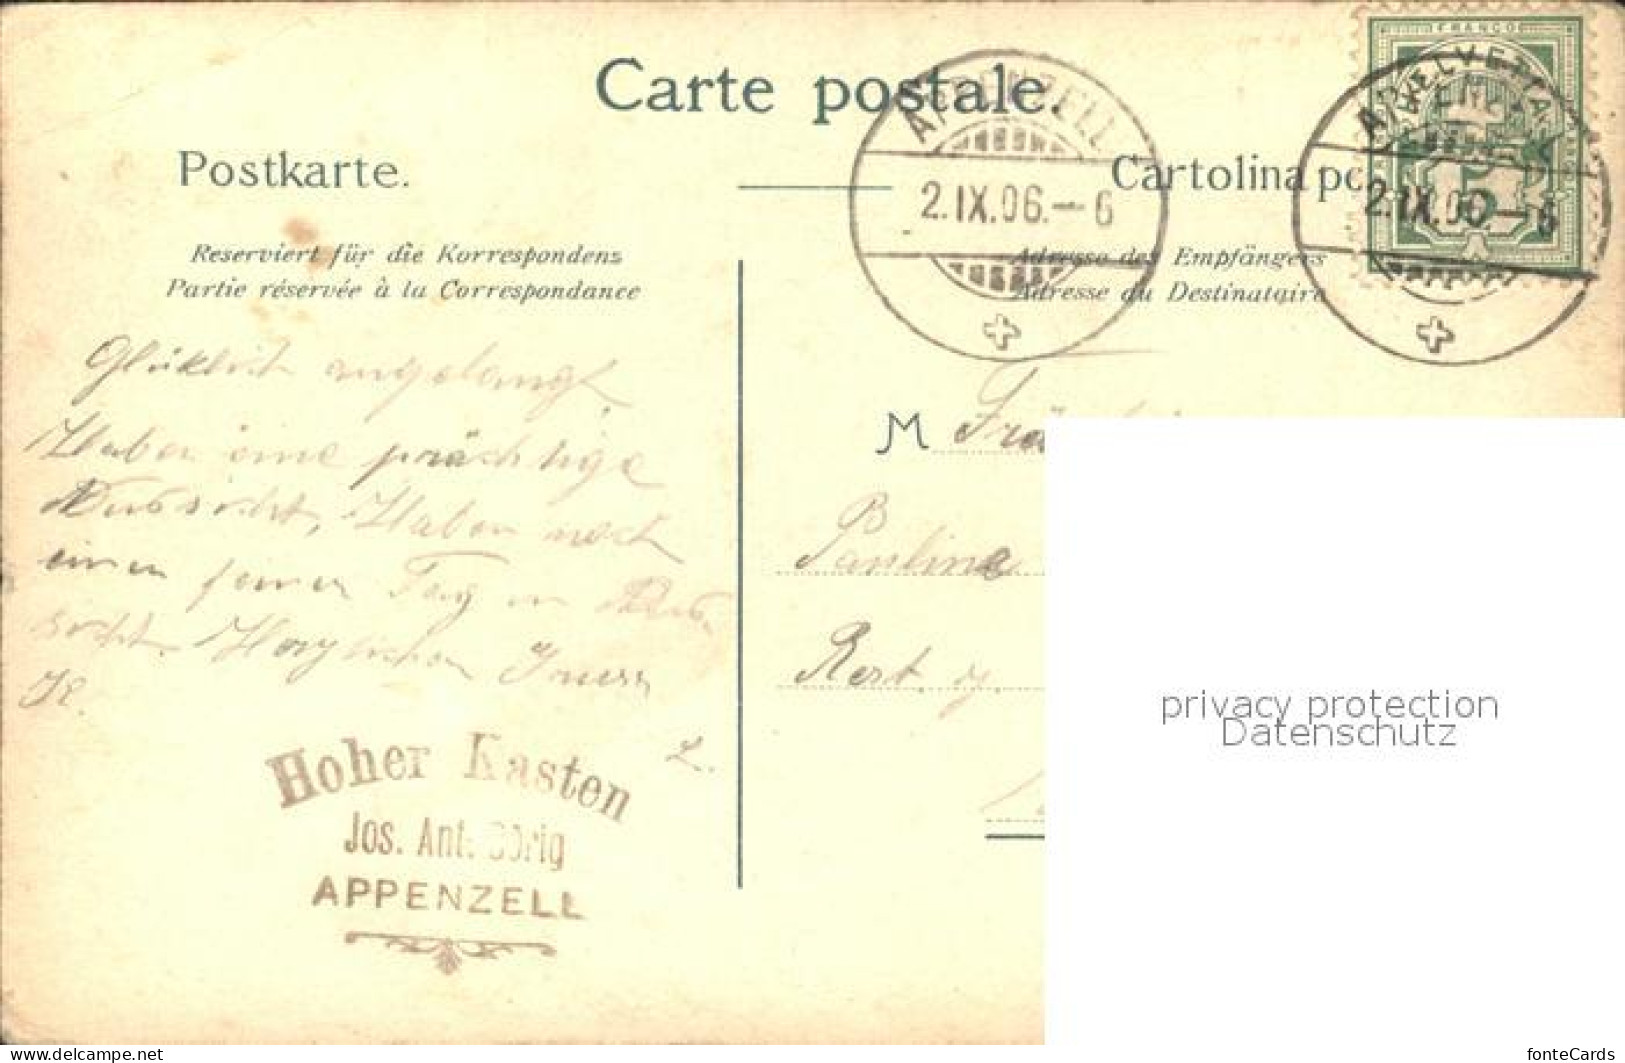 Carte postale.
Postkarte.
Cartolina po
Reserviert für die Korrespondenz
Partie réservée à la Correspondance
Adresse des Empfängers
Adresse du Destinataire
FRANCO
HELVETIA
5
APPENZELL
2.IX.06.—6
APPENZELL
2.IX.06.—6
Glücklich angelangt,
Haben eine prächtige
Aussicht, Haben noch
einen feinen Tag in Aus-
sicht. Herzlichen Gruss
L.
M
Pauline
Hoher Kasten
Jos. Ant. Dörig
APPENZELL
privacy protection
Datenschutz
delcampe.net
fonteCards